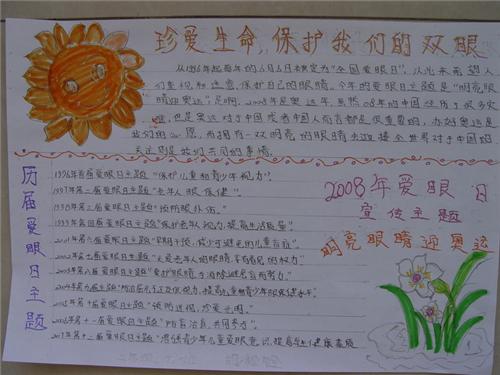 珍爱生命，保护我们的双眼
从1996年起每年的6月6日被定为"全国爱眼日"，
保护自己的眼睛。今年的爱眼日主题是"明亮眼
睛迎奥运"是啊，2008年是奥运年，虽然08年的中国
但是奥运对于中国或者中国人而言都是很重要的，办好奥运是
我们的心愿，而拥有一双明亮的眼睛去迎接全世界对于中国的
关注则是我们共同的事情。
历届爱眼日主题
2008年爱眼日
宣传主题
明亮眼睛迎奥运
1996年首届爱眼日主题"保护儿童和青少年视力"。
1997年第二届爱眼日主题"老年人眼保健"。
1998年第三届爱眼日主题"预防眼外伤"。
1999年第四届爱眼日主题"保护老年人视力，提高生活质量"
2001年第六届爱眼日主题"早期干预，减少可避免的儿童盲症"。
2002年第七届爱眼日主题"关爱老年人的眼睛，享有看见的权力"
2003年第八届爱眼日主题"爱护眼睛，为消除避免盲而努力"。
2004年第九届爱眼日主题"防治屈光不正及低视力，提高儿童和青少年眼保健水平"
2005年第十届爱眼日主题"预防近视，珍爱光明。
2006年第十一届爱眼日主题"防盲治盲，共同参与"。
2007年第十二届爱眼日主题"增强青少年儿童爱眼意识，提高学生健康素质